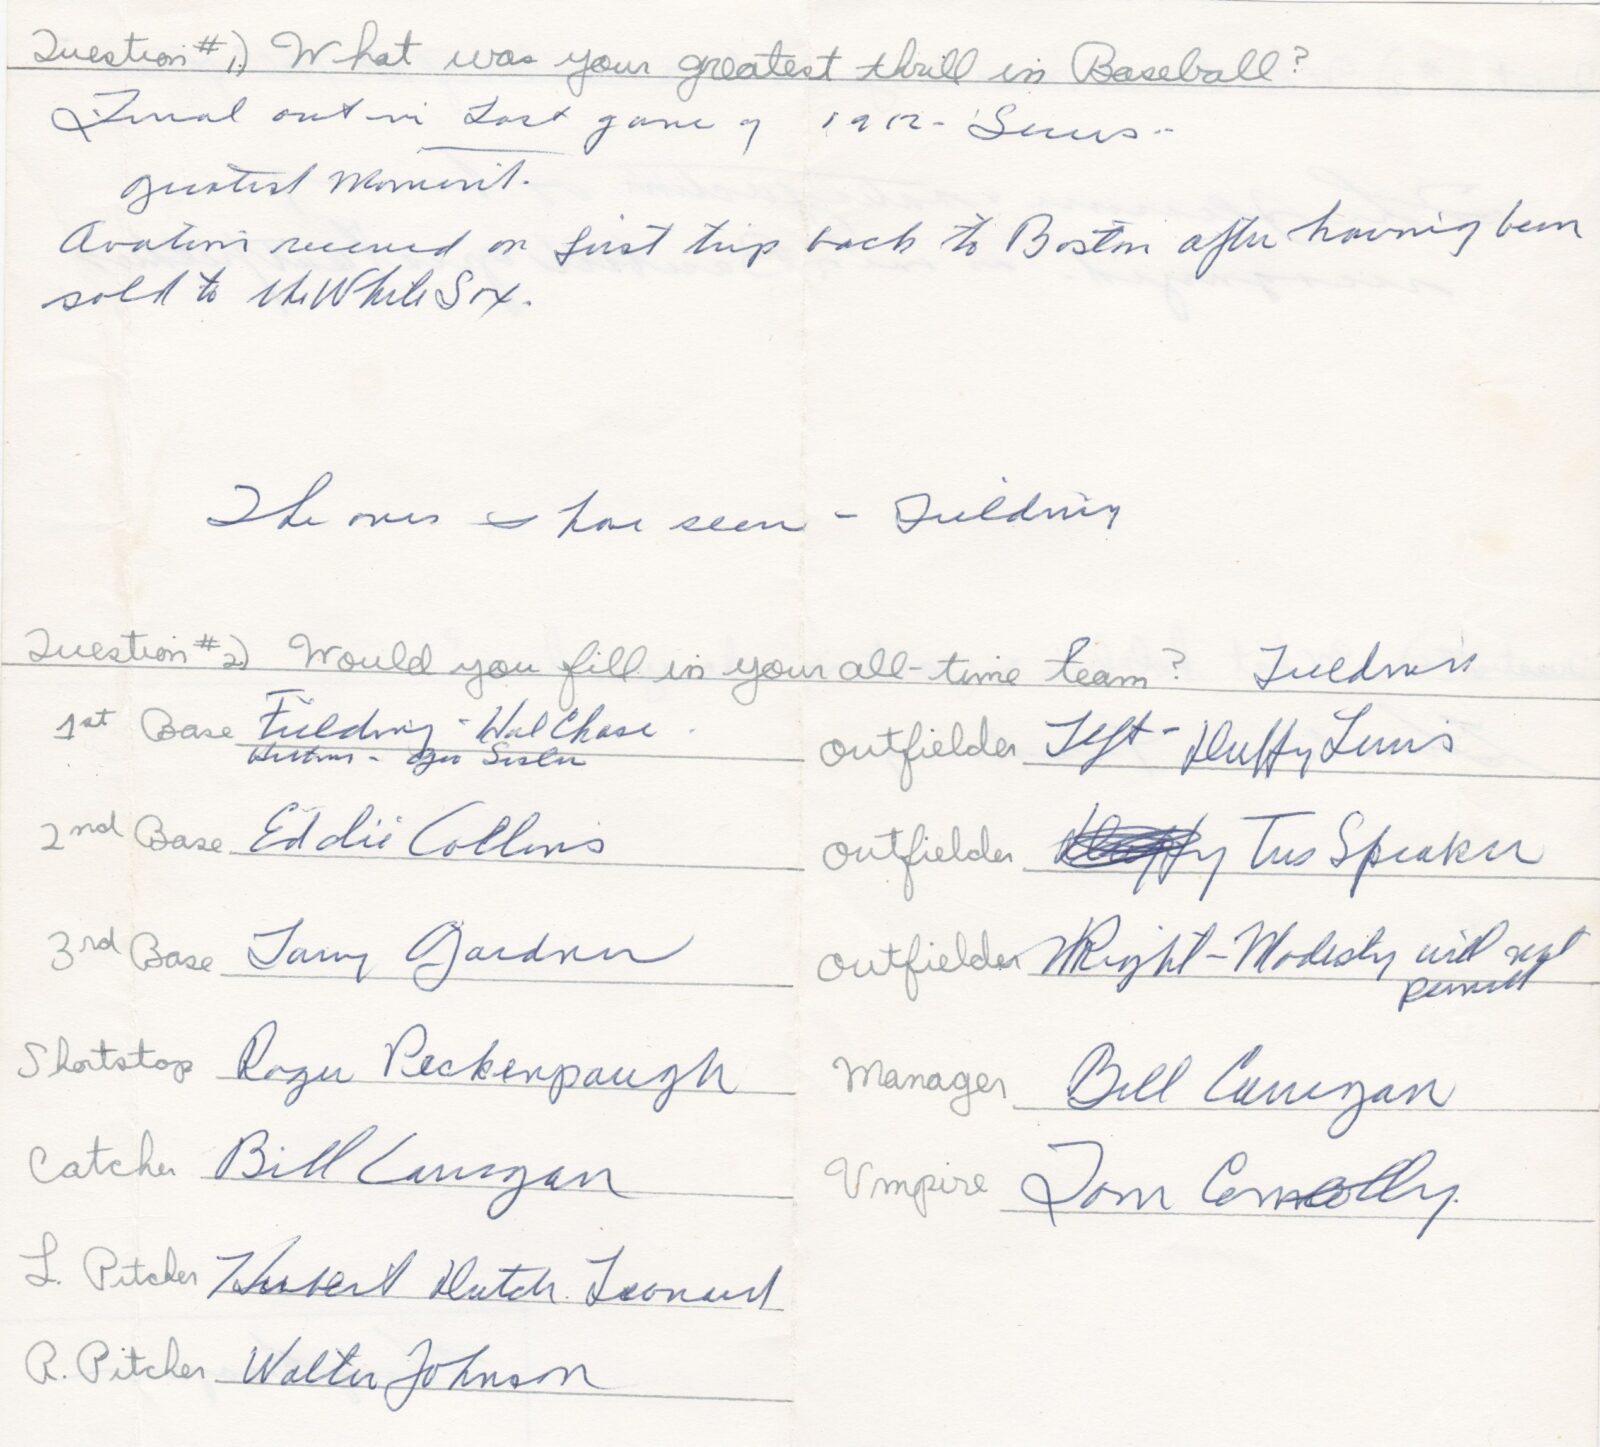 Question #1.) What was your greatest thrill in Baseball?
Final out in last game of 1912 - Series -
greatest moment.
Ovation received on first trip back to Boston after having been
sold to the White Sox.
The ones I have seen - Fielding
Question #2.) Would you fill in your all-time team? Fielding
1st Base Fielding - Hal Chase.
Hitting - Geo Sisler
2nd Base Eddie Collins
3rd Base Larry Gardner
Shortstop Roger Peckenpaugh
Catcher Bill Carrigan
L. Pitcher Hubert Dutch. Leonard
R. Pitcher Walter Johnson
Outfielder Left - Duffy Lewis
Outfielder Tris Speaker
Outfielder Right - Modesty will not
permit
Manager Bill Carrigan
Umpire Tom Connolly.